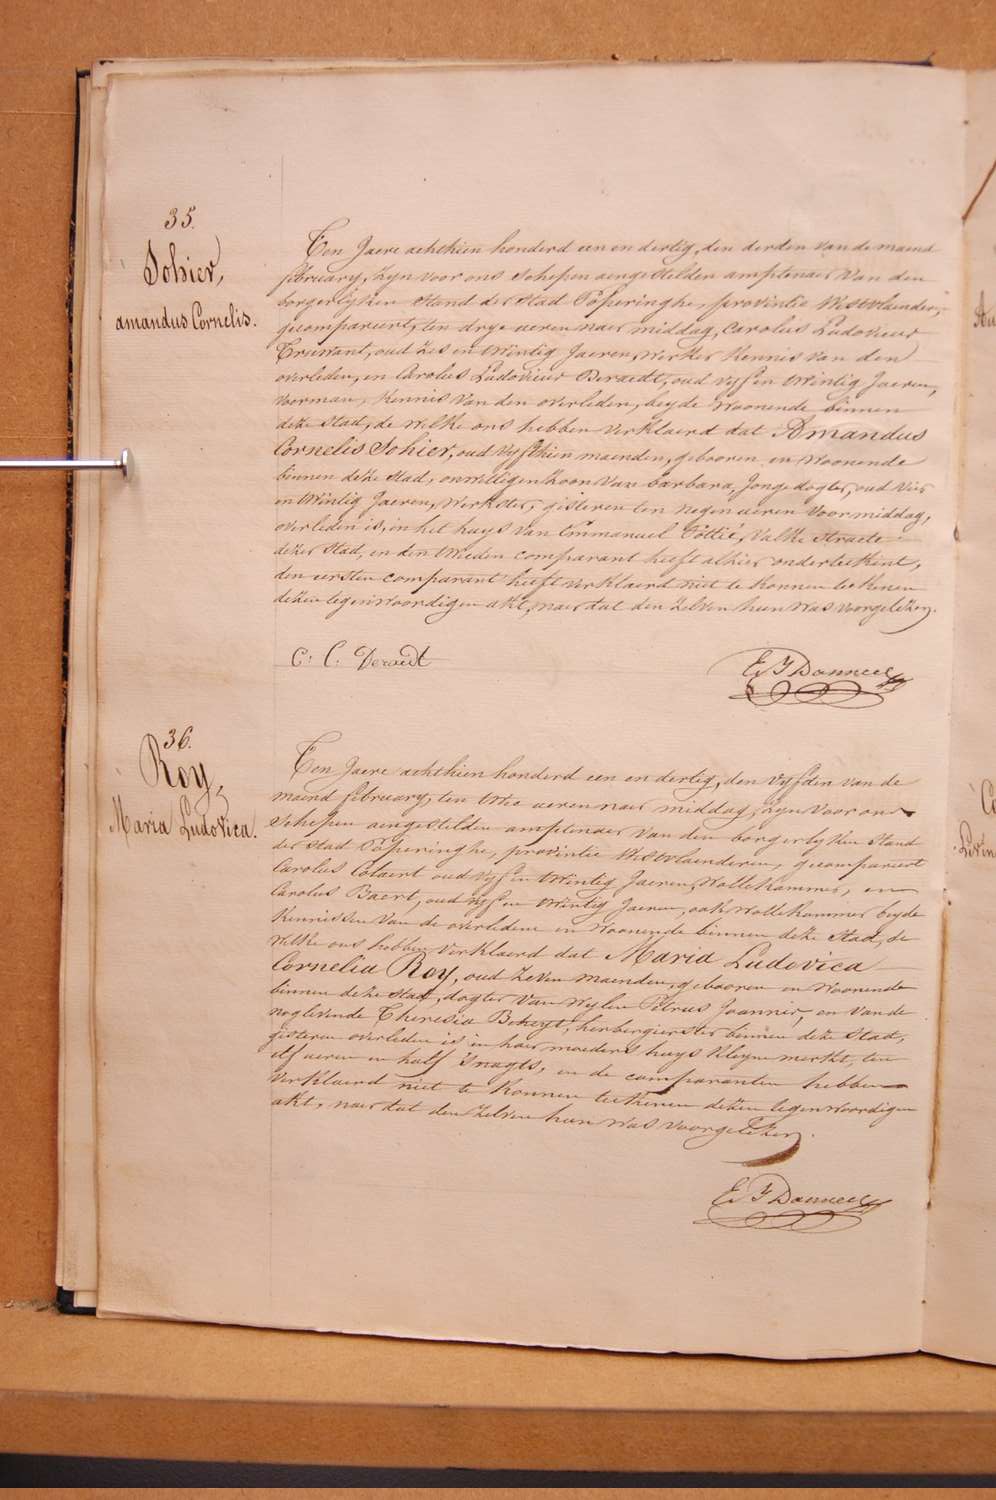 35.
Sohier,
amandus Cornelis.
Ten Jaere achthien honderd een en dertig, den derden van de maend
february, zyn voor ons Schepen aengestelden amptenaer van den
borgerlyken Stand der Stad Poperinghe, provintie Westvlaenderen,
gecompareert, ten drye ueren naer middag, Carolus Ludovicus
Truwant, oud zes en twintig Jaeren, werker kennis van den
overleden, en Carolus Ludovicus Deraedt, oud vyf en twintig Jaeren,
voerman, kennis van den overleden, beyde woonende binnen
deze Stad, de welke ons hebben verklaerd dat Amandus
Cornelis Sohier, oud vyfthien maenden, gebooren en woonende
binnen deze Stad, onwettigen zoon van barbara, Jonge dogter, oud vier
en twintig Jaeren, werkster, gisteren ten negen ueren voor middag,
overleden is, in het huys van Emmanuel Tottié, Valke Straete
dezer Stad, en den tweeden comparant heeft alhier onderteekent,
den eersten comparant heeft verklaerd niet te konnen teekenen
dezen tegenwoordigen akt, naer dat den zelven hun was voorgelezen.
C: L. Deraedt
E J Danneel
36.
Roy,
Maria Ludovica.
Ten Jaere achthien honderd een en dertig, den vyfden van de
maend february, ten twee ueren naer middag, zyn voor ons
Schepen aengestelden amptenaer van den borgerlyken Stand
der Stad Poperinghe, provintie Westvlaenderen, gecompareert
Carolus Colaert oud vyf en twintig Jaeren, wollekammer, en
Carolus Baert, oud vyf en twintig Jaeren, ook wollekammer beyde
kennissen van de overledene en woonende binnen deze Stad, de
welke ons hebben verklaerd dat Maria Ludovica
Cornelia Roy, oud zeven maenden, gebooren en woonende
binnen deze Stad, dogter van wylen Petrus Joannes, en van de
noglevende Theresia Beheyt, herbergierster binnen deze Stad,
gisteren overleden is in haer moeders huys kleyne merkt, ten
elf ueren en half 'snagts, en de comparanten hebben
verklaerd niet te konnen teekenen dezen tegenwoordigen
akt, naer dat den zelven hun was voorgelezen.
E J Danneel